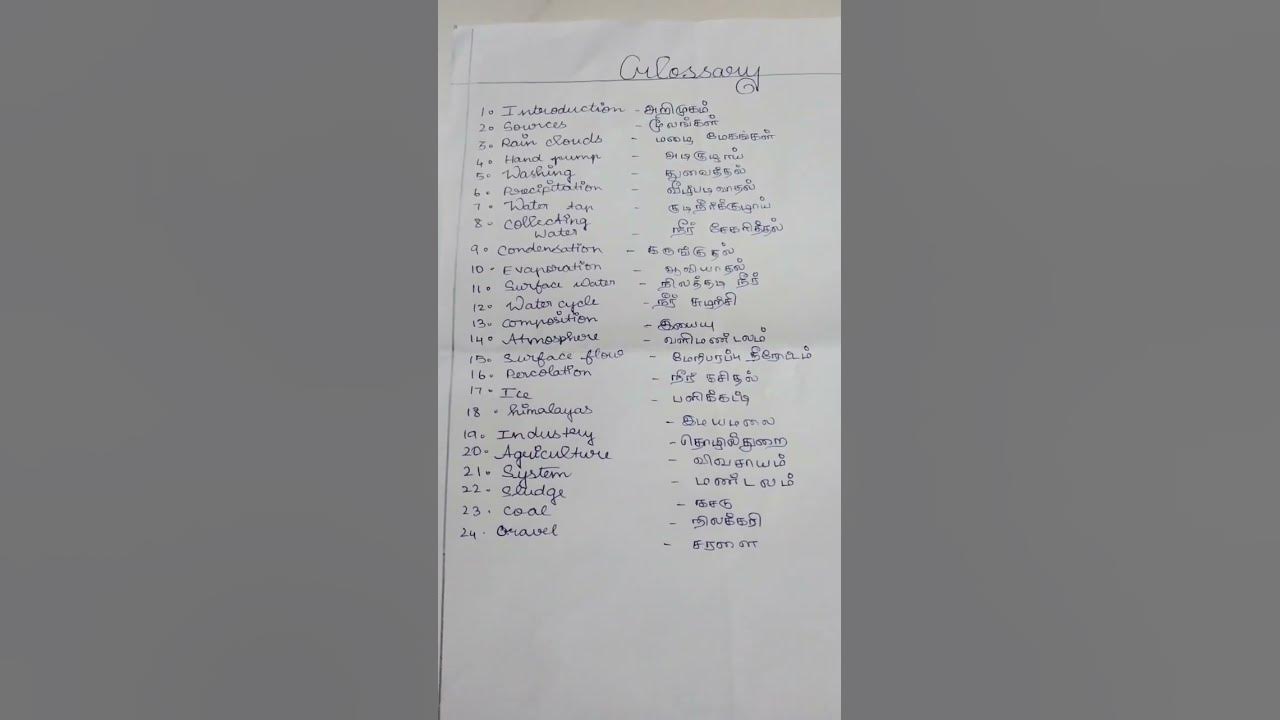 Glossary
1. Introduction - அறிமுகம்
2. Sources - மூலங்கள்
3. Rain clouds - மழை மேகங்கள்
4. Hand pump - அடிகுழாய்
5. Washing - துவைத்தல்
6. Precipitation - வீழ்படிவாதல்
7. Water tap - குடிநீர்க்குழாய்
8. Collecting
Water - நீர் சேகரித்தல்
9. Condensation - சுருங்குதல்
10. Evaporation - ஆவியாதல்
11. Surface water - நிலத்தடி நீர்
12. Water cycle - நீர் சுழற்சி
13. Composition - இயைபு
14. Atmosphere - வளிமண்டலம்
15. Surface flow - மேற்பரப்பு நீரோட்டம்
16. Percolation - நீர் கசிதல்
17. Ice - பனிக்கட்டி
18. himalayas - இமயமலை
19. Industery - தொழில்துறை
20. Aguiculture - விவசாயம்
21. System - மண்டலம்
22. Sludge - கசடு
23. Coal - நிலக்கரி
24. Gravel - சரளை